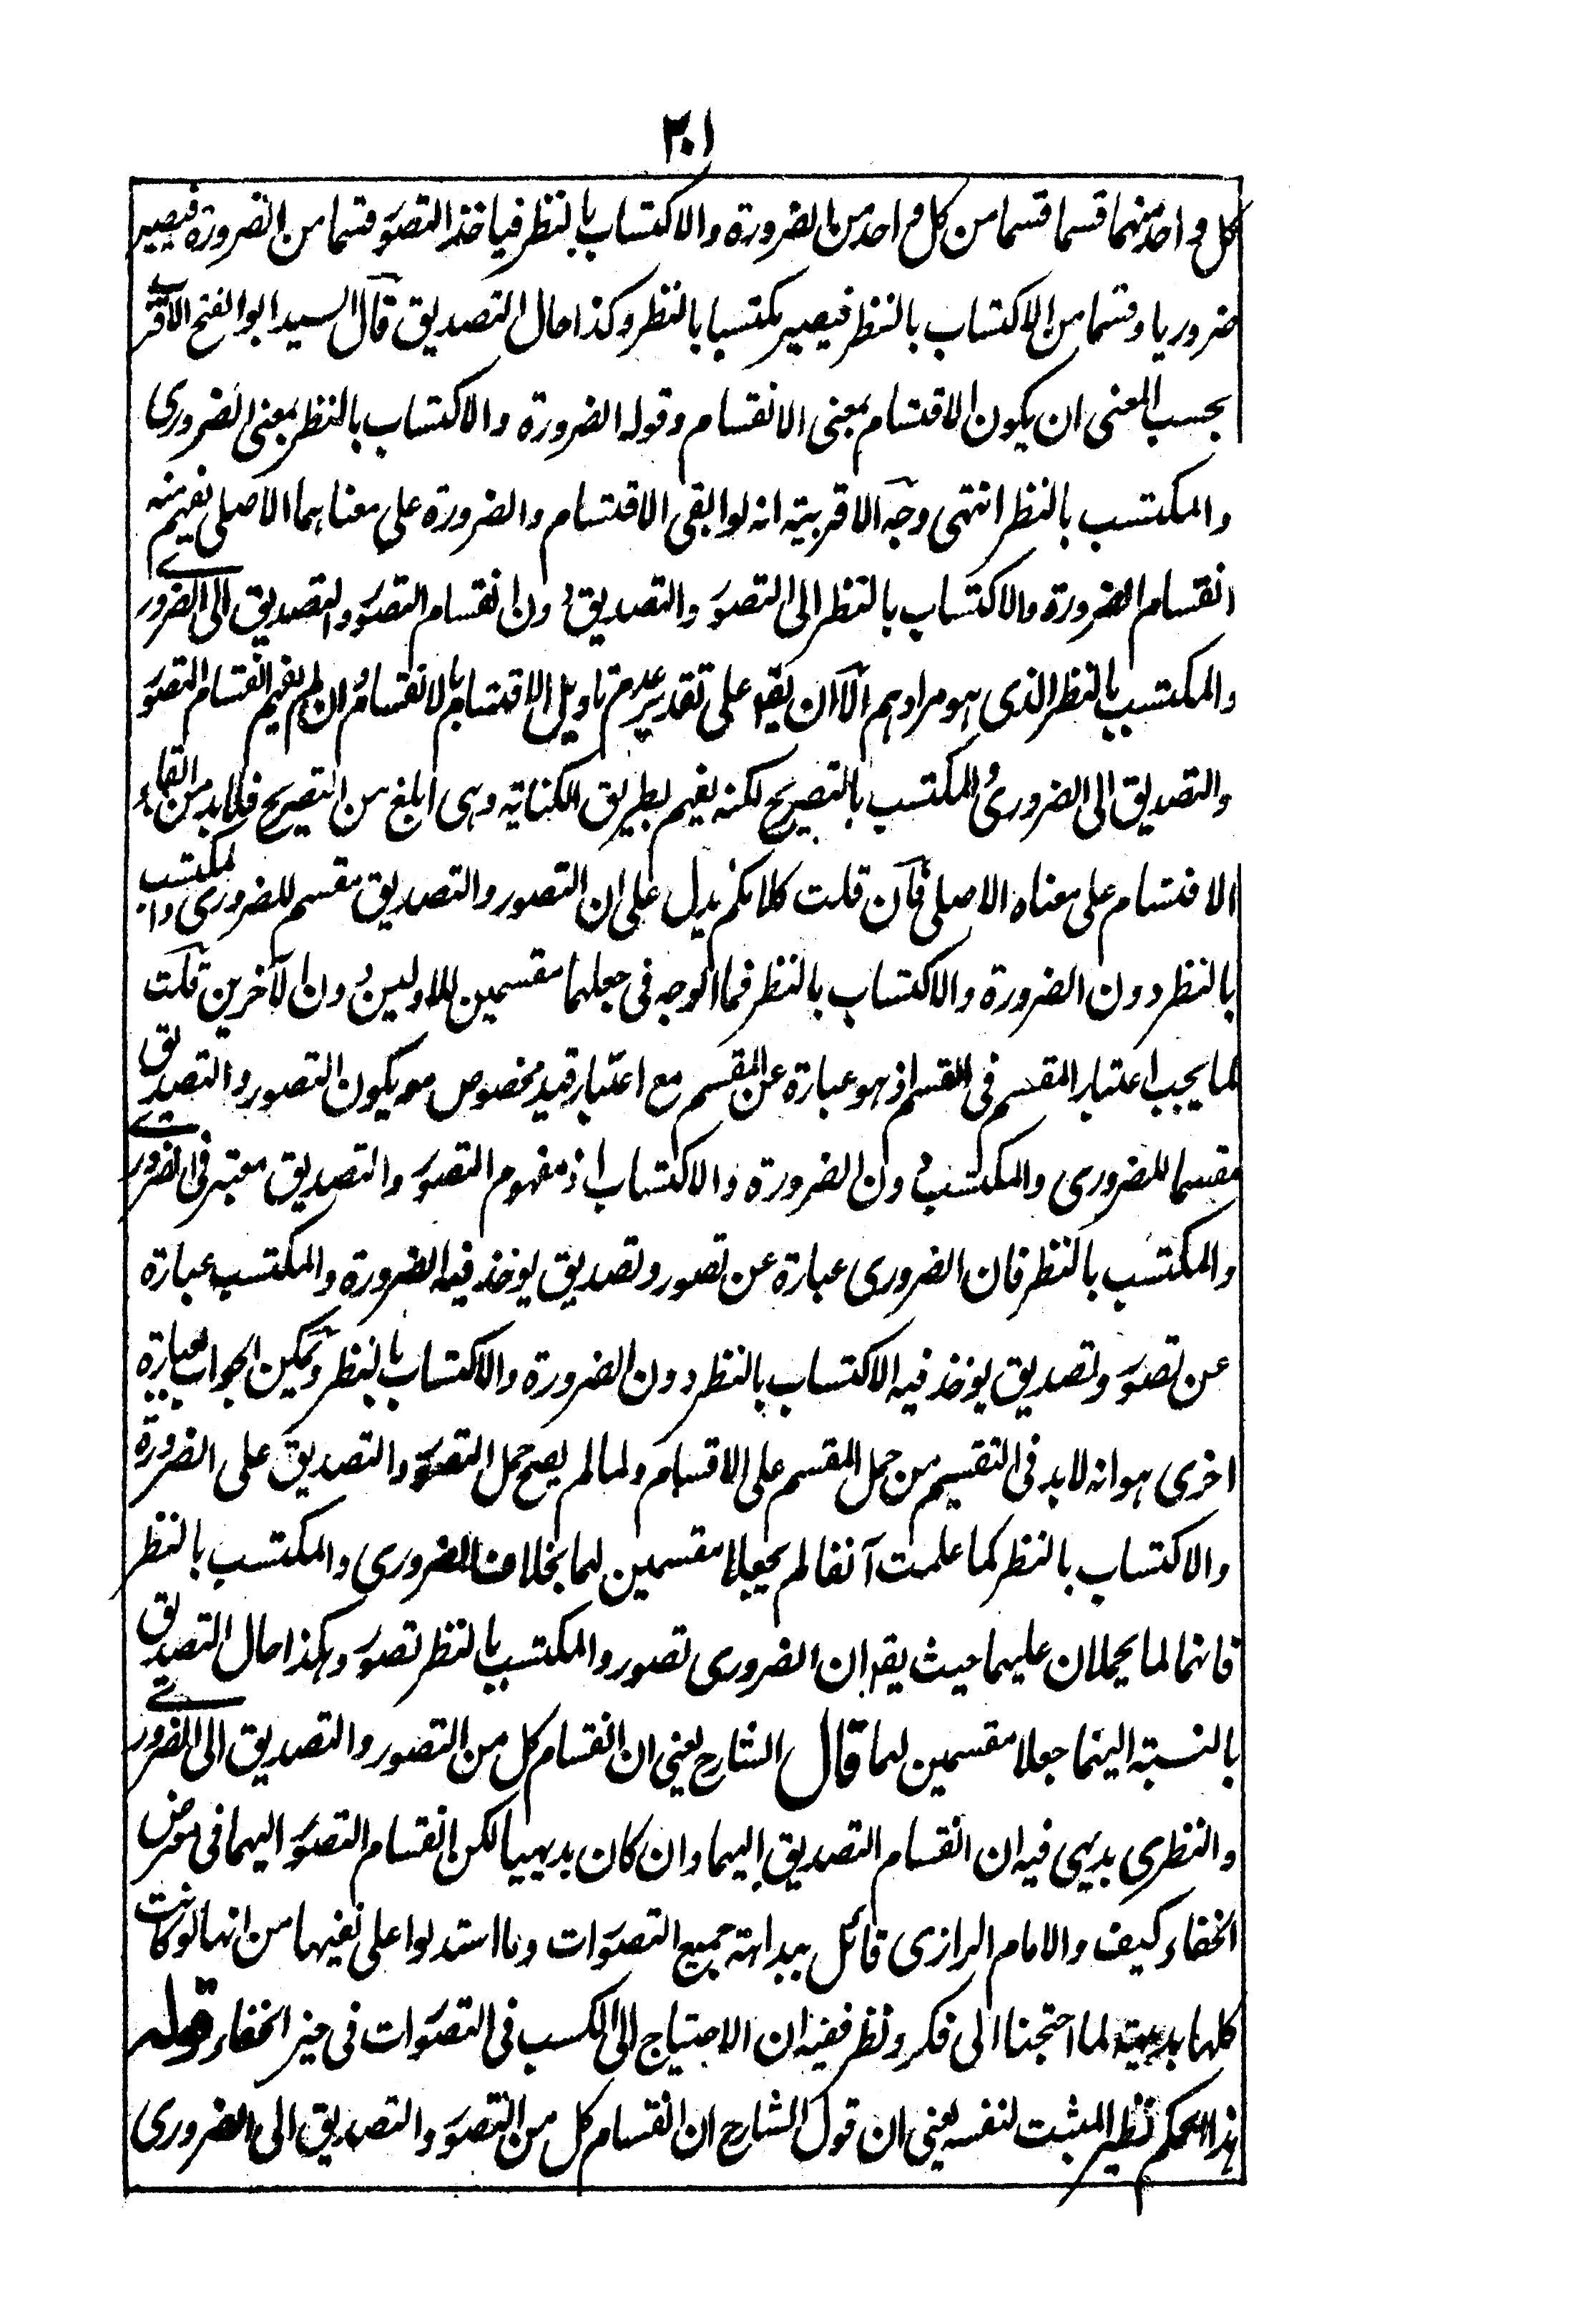 ٣٠١
كل واحد منهما قسما قسما من كل واحد من الضرورة والاكتساب بالنظر فياخذ التصور قسما من الضرورة فيصير
ضروريا وقسما من الاكتساب بالنظر فيصير مكتسبا بالنظر وكذا حال التصديق قال السيد ابو الفتح الاقرب
بحسب المعنى ان يكون الاقتسام بمعنى الانقسام وقوله الضرورة والاكتساب بالنظر بمعنى الضروري
والمكتسب بالنظر انتهى وجه الاقربية انه لو ابقى الاقتسام والضرورة على معناهما الاصلي يفهم منه
انقسام الضرورة والاكتساب بالنظر الى التصور والتصديق دون انقسام التصور والتصديق الى الضروري
والمكتسب بالنظر الذي هو مرادهم الا ان يقه على تقدير عدم تاويل الاقتسام بالانقسام وان لم يفهم انقسام التصور
والتصديق الى الضروري والمكتسب بالتصريح لكنه يفهم بطريق الكناية وهي ابلغ من التصريح فلا بد من ابقاء
الاقتسام على معناه الاصلي فان قلت كلامكم يدل على ان التصور والتصديق مقسم للضروري والمكتسب
بالنظر دون الضرورة والاكتساب بالنظر فما الوجه في جعلهما مقسمين للاولين دون الآخرين قلت
لما يجب اعتبار المقسم في القسم اذ هو عبارة عن المقسم مع اعتبار قيد مخصوص معه يكون التصور والتصديق
مقسما للضروري والمكتسب دون الضرورة والاكتساب اذ مفهوم التصور والتصديق معتبر في الضروري
والمكتسب بالنظر فان الضروري عبارة عن تصور وتصديق يوخذ فيه الضرورة والمكتسب عبارة
عن تصور وتصديق يوخذ فيه الاكتساب بالنظر دون الضرورة والاكتساب بالنظر ويمكن الجواب بعبارة
اخرى هو انه لا بد في التقسيم من حمل المقسم على الاقسام ولما لم يصح حمل التصور والتصديق على الضرورة
والاكتساب بالنظر كما علمت آنفا لم يجعلا مقسمين لهما بخلاف الضروري والمكتسب بالنظر
فانهما لما يحملان عليهما حيث يقه ان الضروري تصور والمكتسب بالنظر تصور وهكذا حال التصديق
بالنسبة اليهما جعلا مقسمين لهما قال الشارح يعني ان انقسام كل من التصور والتصديق الى الضروري
والنظري بديهي فيه ان انقسام التصديق اليهما وان كان بديهيا لكن انقسام التصور اليهما في معرض
الخفاء كيف والامام الرازي قائل ببداهة جميع التصورات وما استدلوا على نفيها من انها لو كانت
كلها بديهية لما احتجنا الى فكر ونظر ففيه ان الاحتياج الى الكسب في التصورات في حيز الخفاء قوله
هذا الحكم نظير المثبت لنفسه يعني ان قول الشارح ان انقسام كل من التصور والتصديق الى الضروري